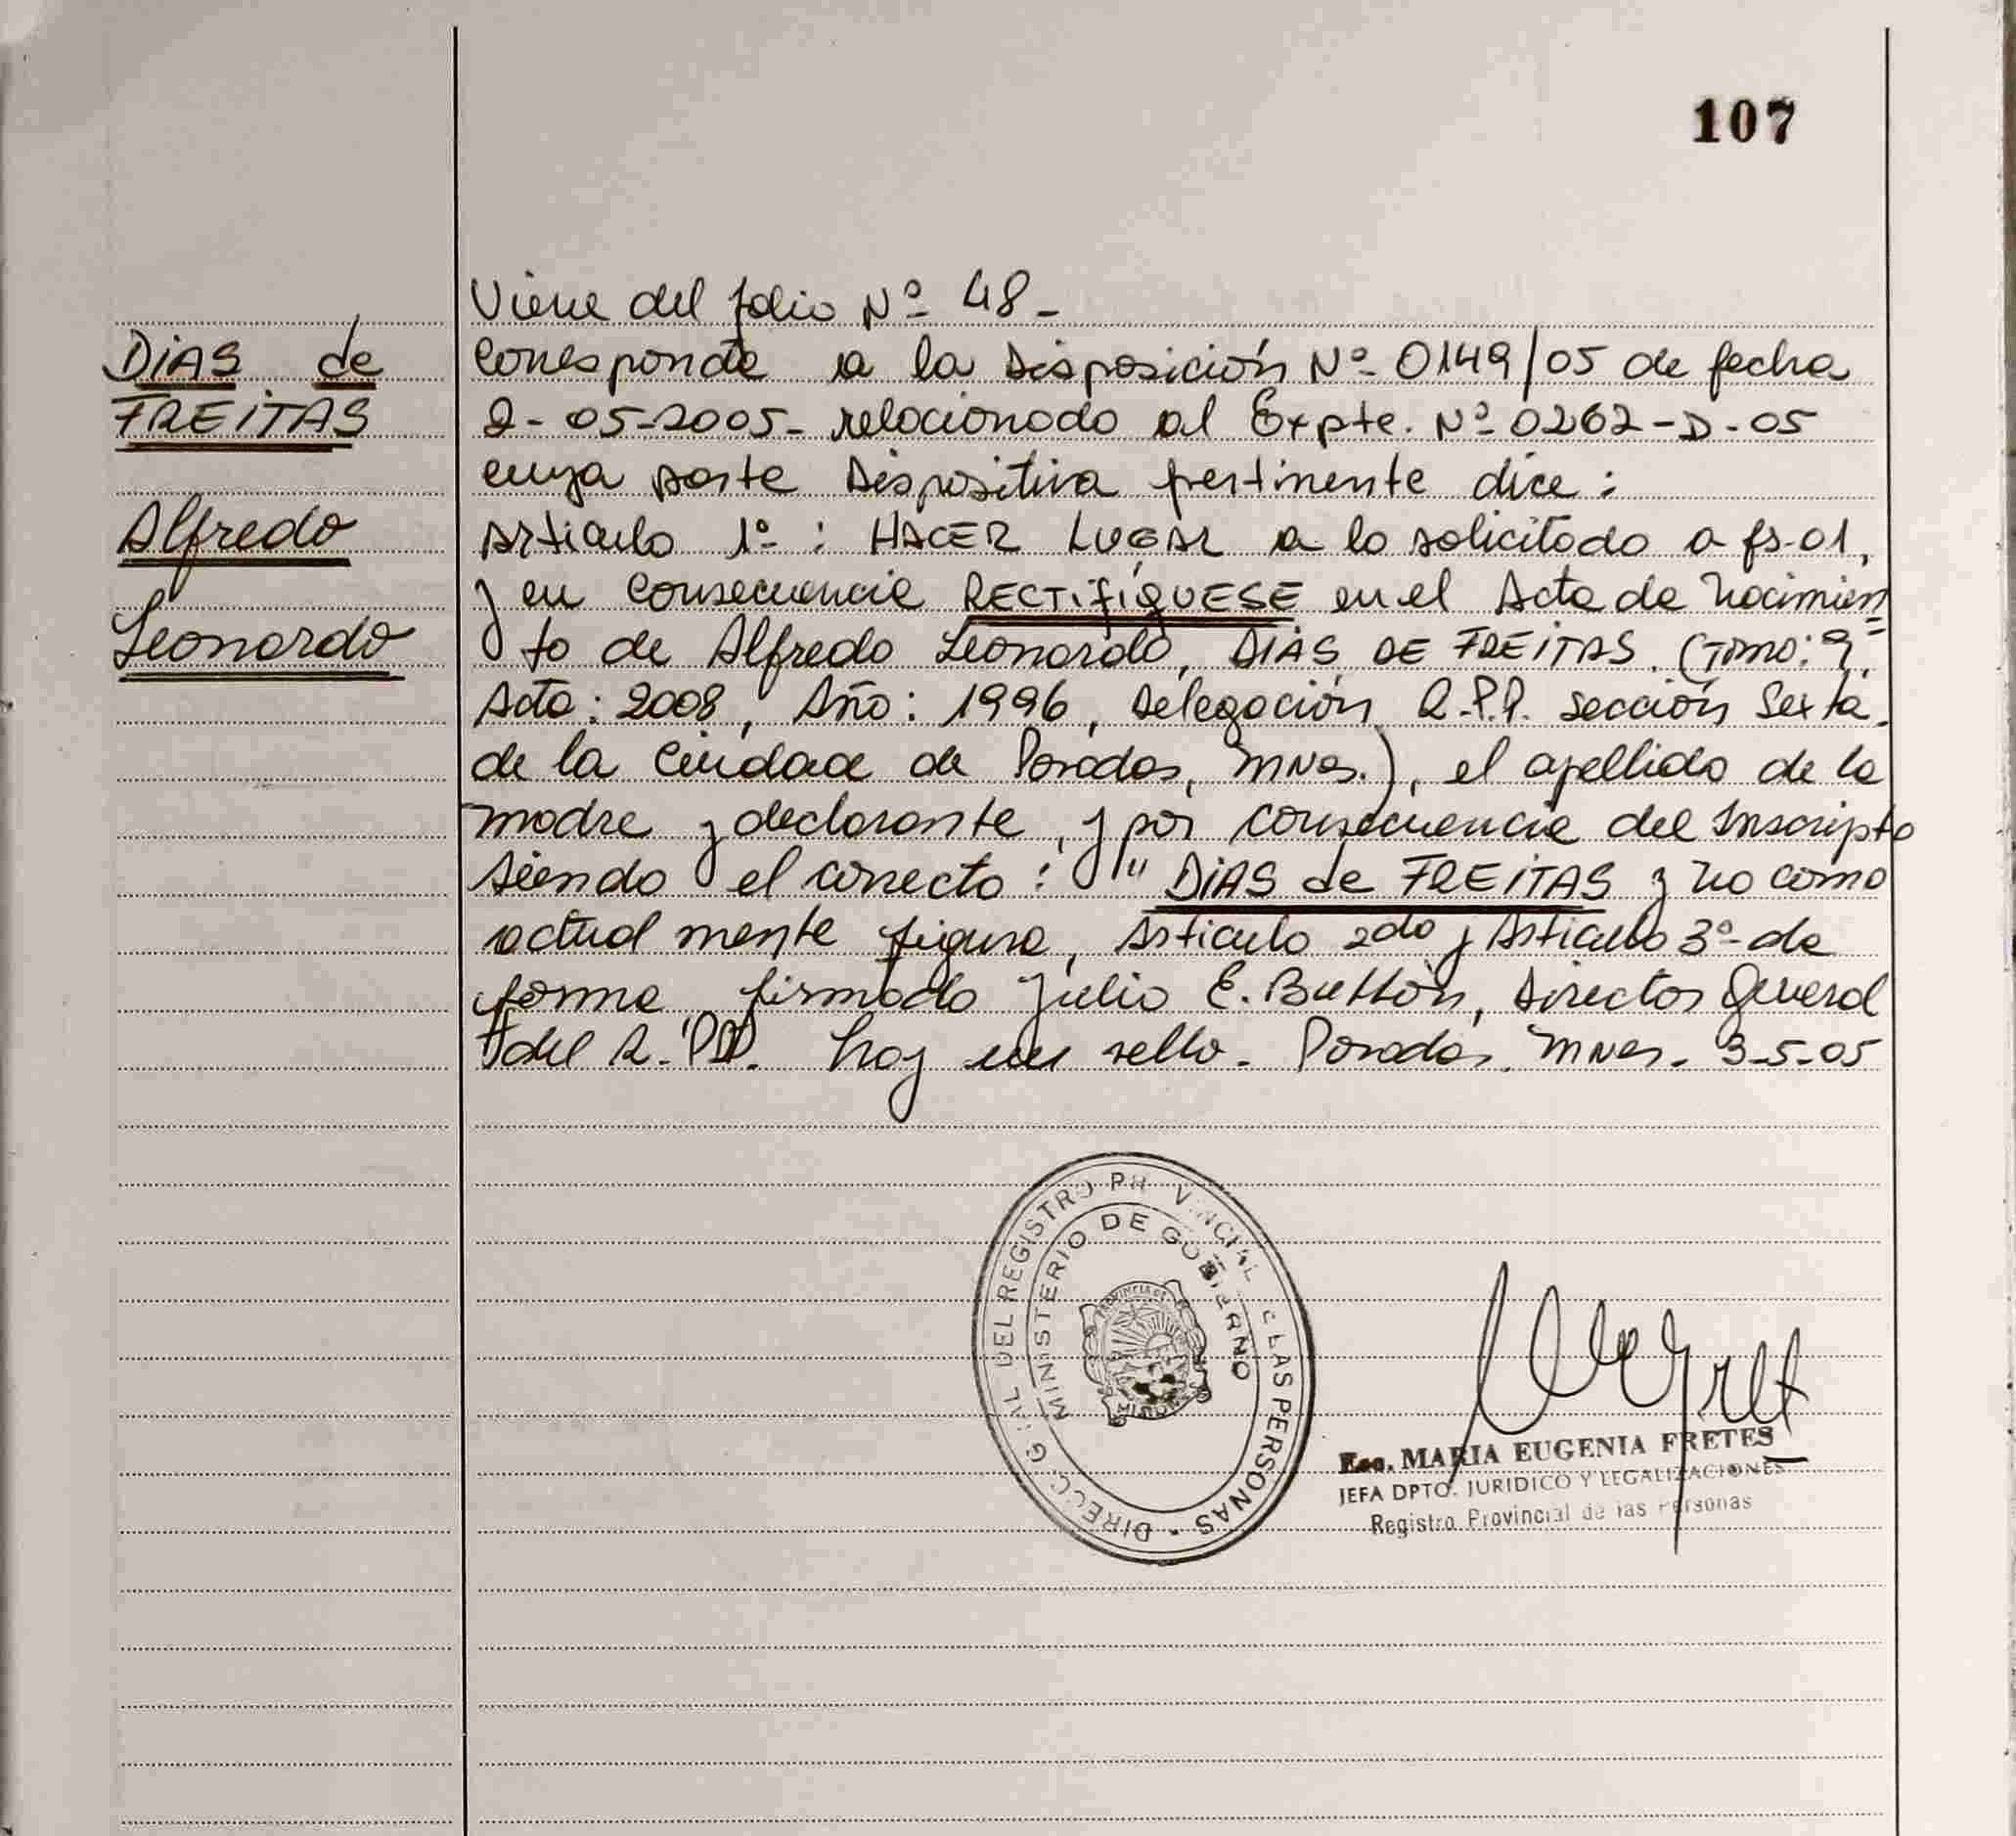 107
DIAS de
FREITAS
Alfredo
Leonardo
Viene del folio Nº 48-
Corresponde a la Disposición Nº 0149/05 de fecha
2-05-2005- relacionado al Expte. Nº 0262-D-05
cuya parte Dispositiva pertinente dice:
Articulo 1º: HACER LUGAR a lo solicitado a fs-01,
y en consecuencia RECTIFÍQUESE en el Acta de Nacimien
to de Alfredo Leonardo, DIAS DE FREITAS. (Tomo: 9º.
Acta: 2008, Año: 1996, Delegación R.P.P. sección Sexta,
de la Ciudad de Posadas, Mnes.), el apellido de la
madre y declarante, y por consecuencia del Inscripto
siendo el correcto: " DIAS de FREITAS y no como
actual mente figura, Articulo 2do y Articulo 3º de
forma firmado Julio E. Button, Director General
del R.PP. hay un sello. Posadas, Mnes. 3-5-05
DIRECC GRAL DEL REGISTRO PR VINCIAL E LAS PERSONAS
MINISTERIO DE GOBIERNO
PROVINCIA DE
MISIONES
Esc. MARIA EUGENIA FRETES
JEFA DPTO. JURIDICO Y LEGALIZACIONES
Registro Provincial de las Personas